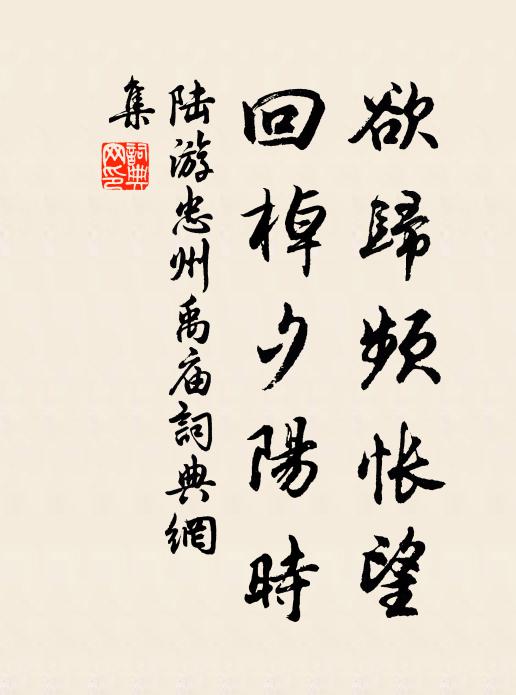 欲歸頻悵望
回棹夕陽時
陸游忠州禹廟詞典網
集
詞典網印